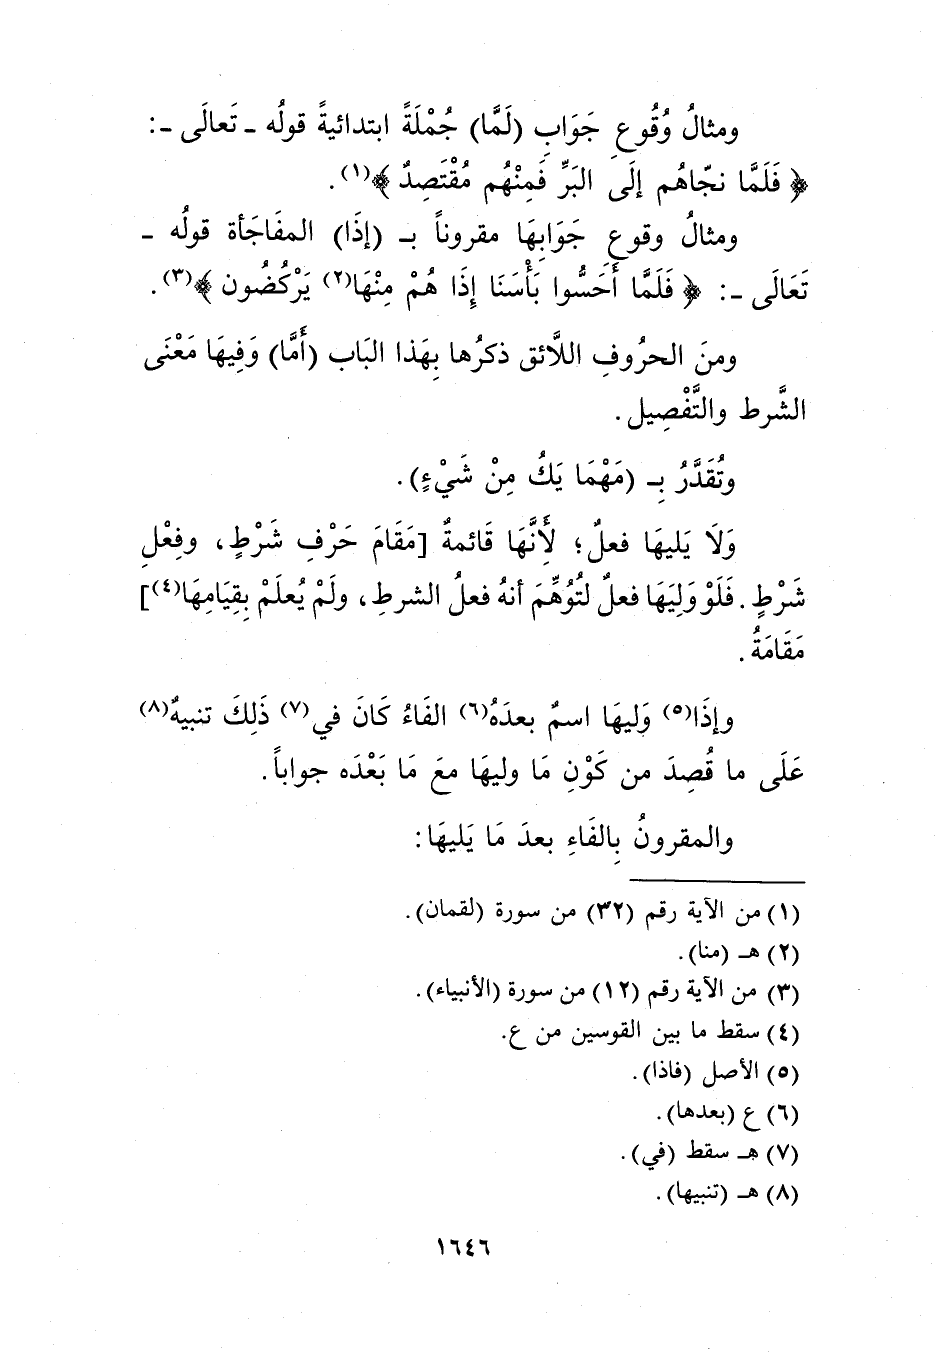 ومثالُ وُقُوعِ جَوَابِ (لَمَّا) جُمْلَةً ابتدائيةً قولُه ـ تَعالَى ـ:
﴿ فَلَمَّا نجّاهُم إلَى البَرِّ فَمِنْهُم مُقْتَصِدٌ ﴾(١).
ومثالُ وقوعِ جَوَابِهَا مقروناً بـ (إذَا) المفَاجَأة قولُه ـ
تَعَالَى ـ: ﴿ فَلَمَّا أَحَسُّوا بَأْسَنَا إِذَا هُمْ مِنْهَا(٢) يَرْكُضُون ﴾(٣).
ومنَ الحرُوفِ اللَّائق ذكرُها بِهَذا البَاب (أَمَّا) وَفِيهَا مَعْنَى
الشَّرط والتَّفْصِيل.
وتُقَدَّرُ بِـ (مَهْمَا يَكُ مِنْ شَيْءٍ).
وَلَا يَليهَا فعلٌ؛ لِأَنَّهَا قَائمةٌ [مَقَامَ حَرْفِ شَرْطٍ، وفِعْلِ
شَرْطٍ. فَلَوْ وَلِيَهَا فعلٌ لتُوُهِّمَ أنهُ فعلُ الشرطِ، ولَمْ يُعلَمْ بِقِيَامِهَا(٤)]
مَقَامَهُ.
وإذَا(٥) وَليهَا اسمٌ بعدَهُ(٦) الفَاءُ كَانَ في(٧) ذَلِكَ تنبيهٌ(٨)
عَلَى ما قُصِدَ من كَوْنِ مَا وليهَا معَ مَا بَعْدَه جواباً.
والمقرونُ بِالفَاءِ بعدَ مَا يَليهَا:
(١) من الآية رقم (٣٢) من سورة (لقمان).
(٢) هـ (منا).
(٣) من الآية رقم (١٢) من سورة (الأنبياء).
(٤) سقط ما بين القوسين من ع.
(٥) الأصل (فاذا).
(٦) ع (بعدها).
(٧) هـ سقط (في).
(٨) هـ (تنبيها).
١٦٤٦